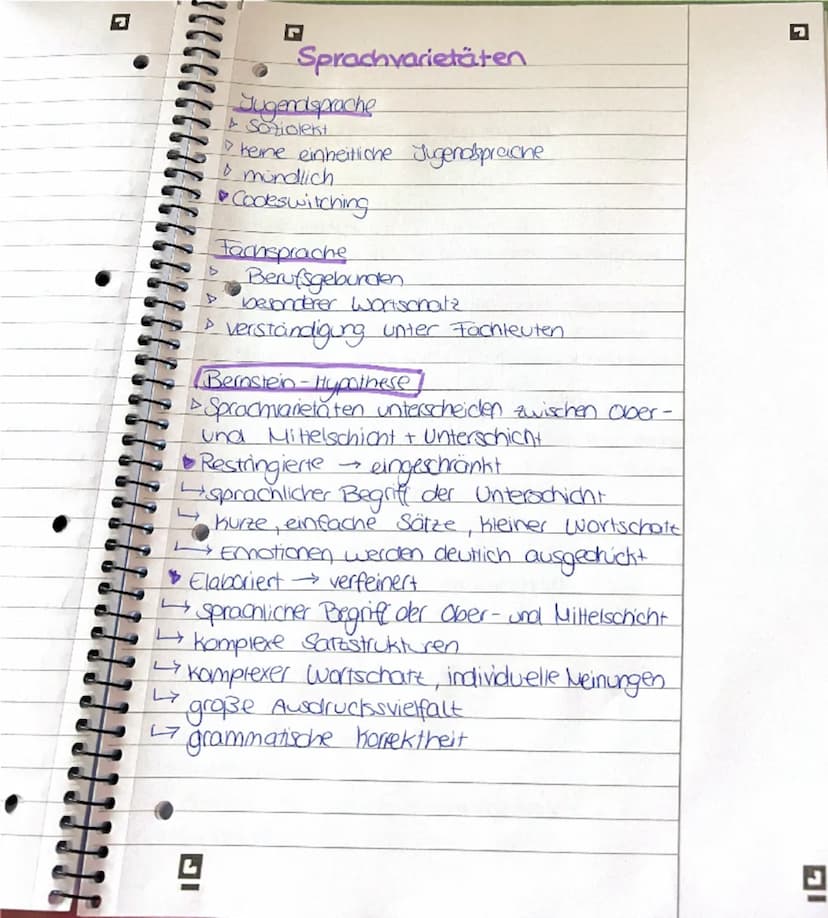 Sprachvarietäten
Jugendsprache
▹ Soziolekt
▹ keine einheitliche Jugendsprache
▹ mündlich
▸ Codeswitching
Fachsprache
▹ Berufsgebunden
▹ besonderer Wortschatz
▹ Verständigung unter Fachleuten
Bernstein-Hypothese
▹ Sprachvarietäten unterscheiden zwischen Ober-
und Mittelschicht + Unterschicht
▸ Restringierte → eingeschränkt
↳ sprachlicher Begriff der Unterschicht
↳ kurze, einfache Sätze, kleiner Wortschatz
↳ Emotionen werden deutlich ausgedückt
▸ Elaboriert → verfeinert
↳ sprachlicher Begriff der Ober- und Mittelschicht
↳ komplexe Satzstrukturen
↳ komplexer Wortschatz, individuelle Meinungen
↳ große Ausdrucksvielfalt
↳ grammatische Korrektheit